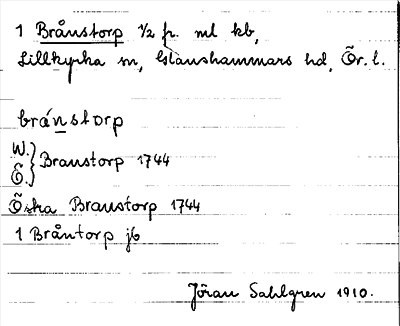 1 Brånstorp ½ fr. ml kb,
Lillkyrka sn, Glanshammars hd, Ör. l.
brånstorp
W.} Branstorp 1744
Ö.}
Östra Branstorp 1744
1 Bråntorp jb
Jöran Sahlgren 1910.